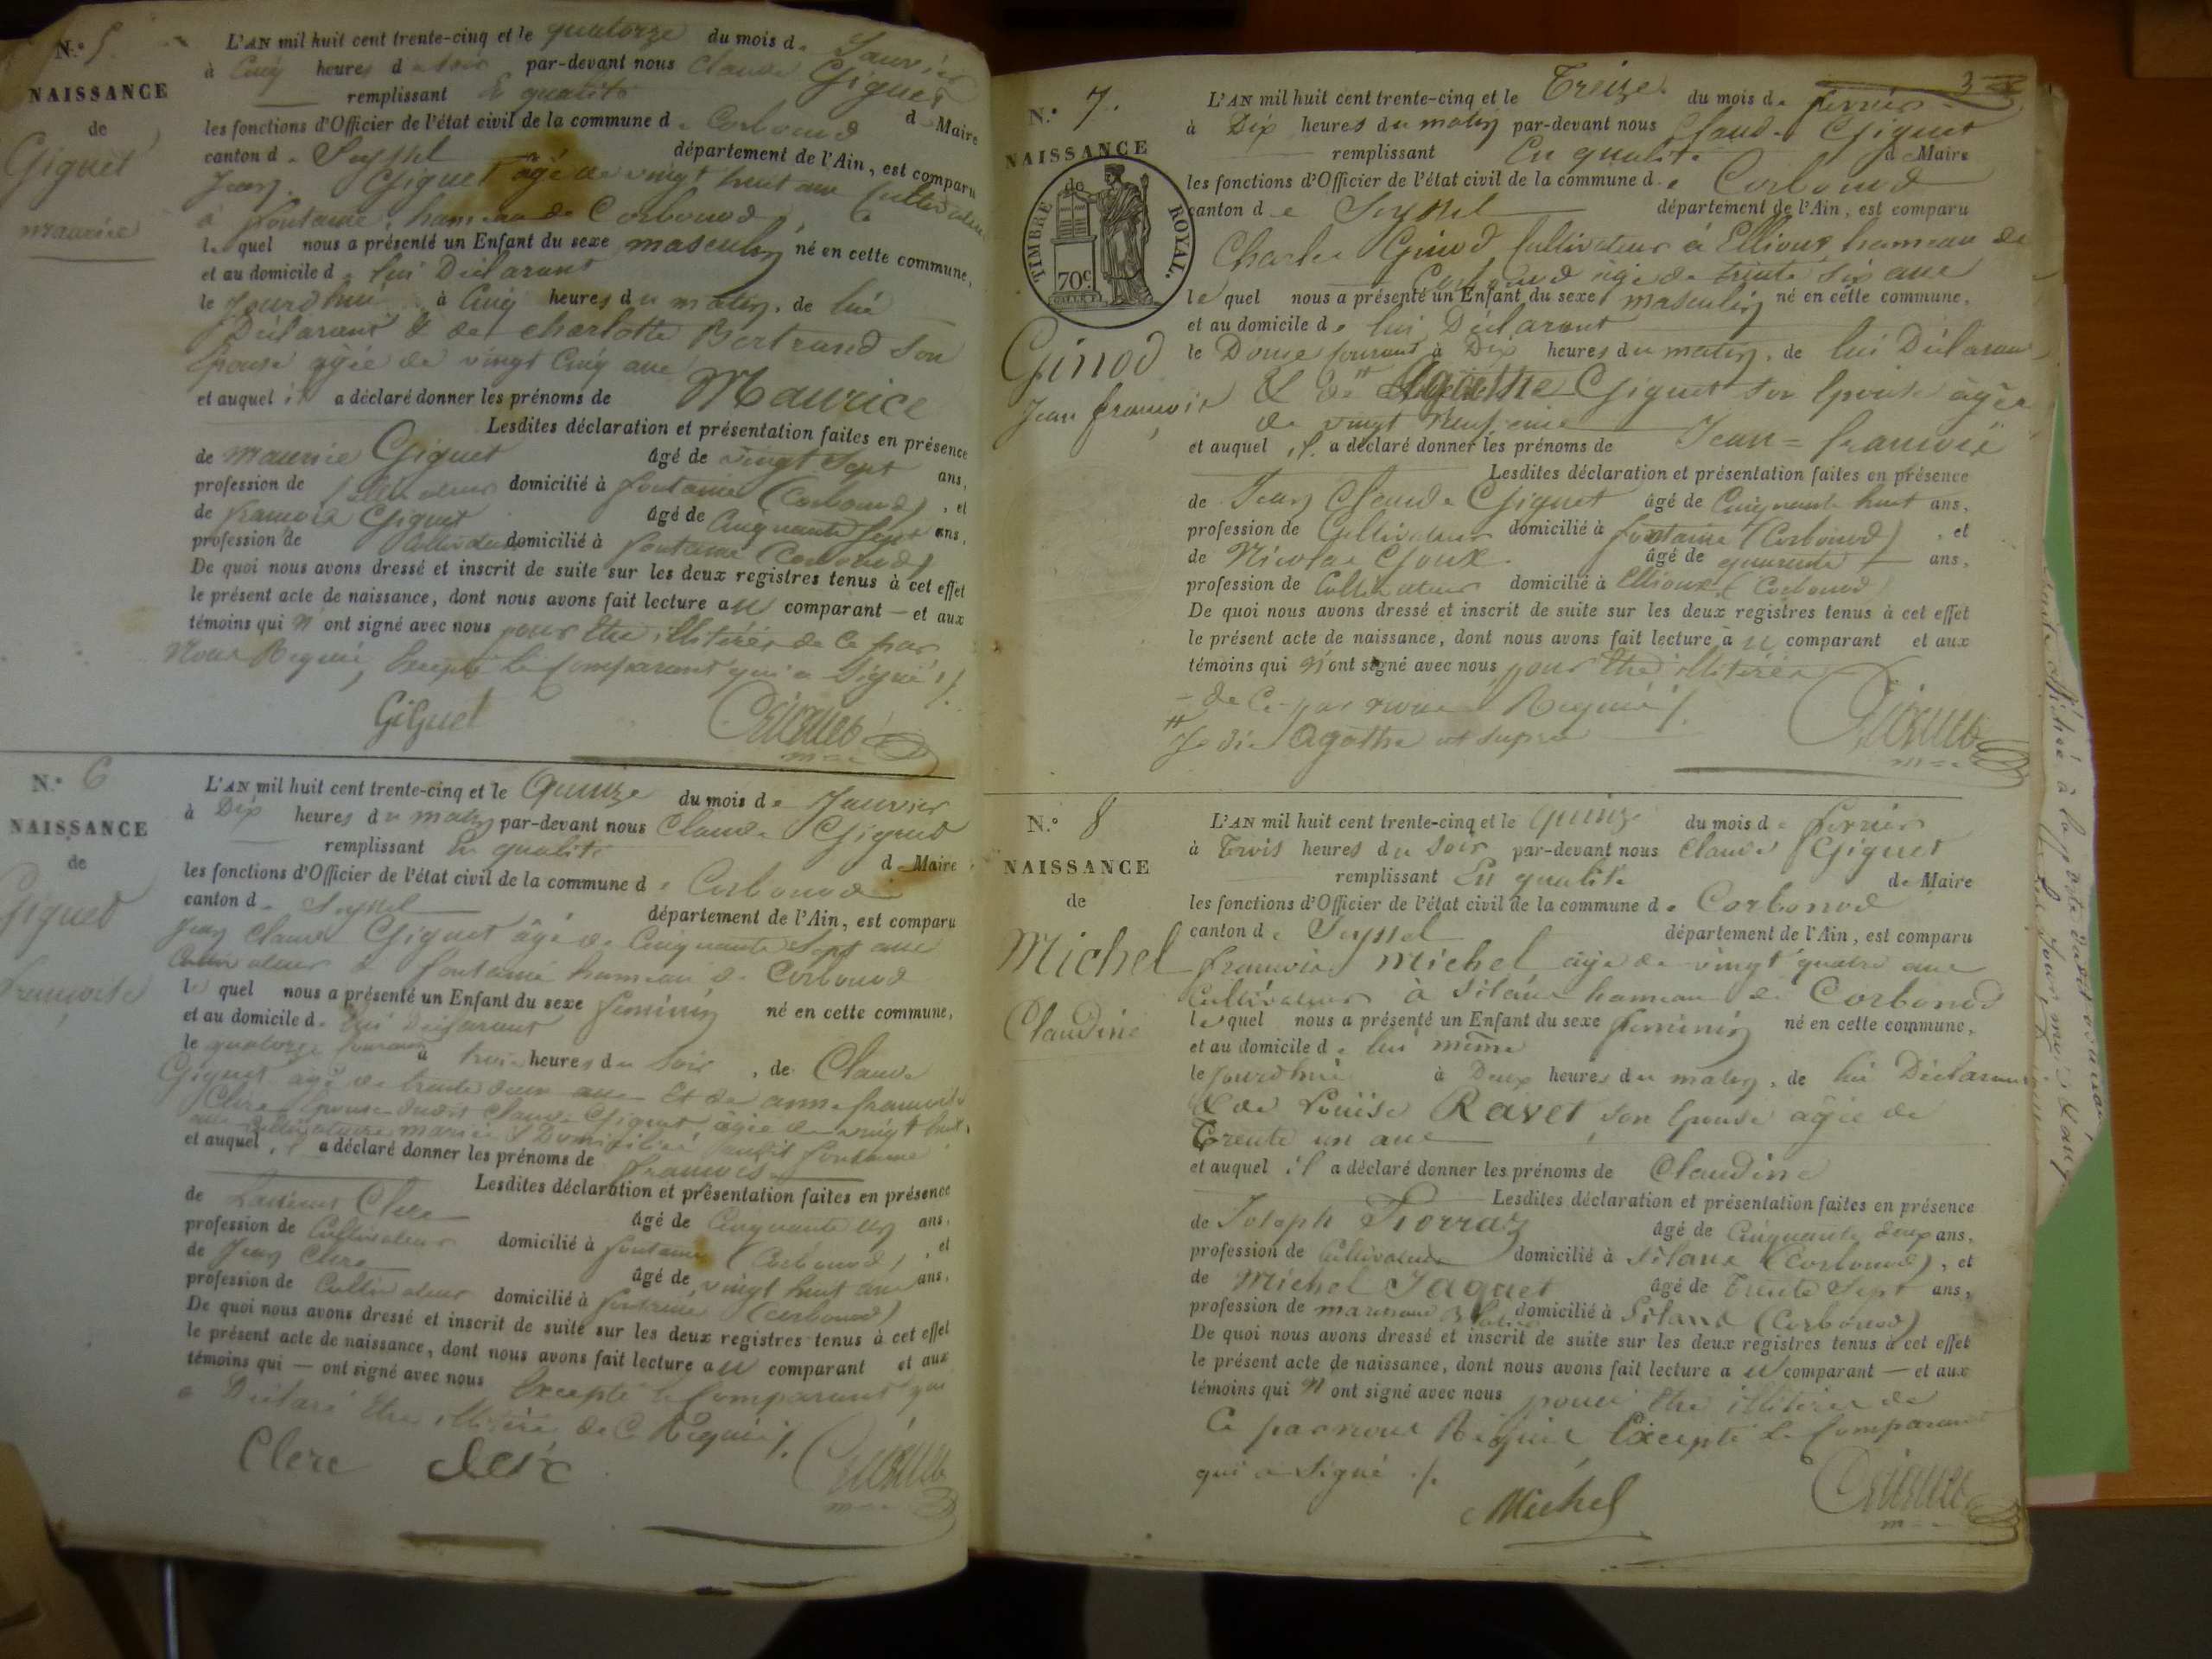 N.° 5
NAISSANCE
de
Giguet
maurice
L'AN mil huit cent trente-cinq et le quatorze du mois de Janvier
à Cinq heures du soir par-devant nous Claude Giguet
remplissant En qualité de Maire
les fonctions d'Officier de l'état civil de la commune de Corbonod
canton de Seyssel département de l'Ain, est comparu
Jean Giguet âgé de vingt huit ans Cultivateur
à fontaine, hameau de Corbonod,
lequel nous a présenté un Enfant du sexe masculin né en cette commune,
et au domicile de lui Déclarant
le Jourdhui à Cinq heures du matin, de lui
Déclarant & de charlotte Bertrand son
Epouse agée de vingt Cinq ans
et auquel il a déclaré donner les prénoms de Maurice
Lesdites déclaration et présentation faites en présence
de maurice Giguet âgé de vingt Sept ans,
profession de Cultivateur domicilié à fontaine (Corbonod), et
de francois Giguet âgé de Cinquante Sept ans,
profession de Cultivateur domicilié à fontaine (Corbonod)
De quoi nous avons dressé et inscrit de suite sur les deux registres tenus à cet effet
le présent acte de naissance, dont nous avons fait lecture au comparant — et aux
témoins qui n'ont signé avec nous pour Etre illitérés de Ce par
Nous Requis, Excepté le Comparant qui a Signé ./.
GiGuet Giguet
N.° 6
NAISSANCE
de
Giguet
francoise
L'AN mil huit cent trente-cinq et le Quinze du mois de Janvier
à Dix heures du matin par-devant nous Claude Giguet
remplissant En qualité de Maire
les fonctions d'Officier de l'état civil de la commune de Corbonod
canton de Seyssel département de l'Ain, est comparu
Jean Claude Giguet âgé de Cinquante Sept ans
Cultivateur à fontaine hameau de Corbonod
lequel nous a présenté un Enfant du sexe féminin né en cette commune,
et au domicile de lui Déclarant
le quatorze Courant à trois heures du Soir, de Claude
Giguet agé de trente deux ans Et de anne francoise
Clerc Epouse dudit Claude Giguet agée de vingt huit
ans Cultivateurs mariés & Domiciliés audit fontaine
et auquel il a déclaré donner les prénoms de francoise
Lesdites déclaration et présentation faites en présence
de Clerc âgé de Cinquante un ans,
profession de Cultivateur domicilié à fontaine (Corbonod), et
de Jean Clerc âgé de vingt huit ans ans,
profession de Cultivateur domicilié à fontaine (corbonod)
De quoi nous avons dressé et inscrit de suite sur les deux registres tenus à cet effet
le présent acte de naissance, dont nous avons fait lecture au comparant et aux
témoins qui — ont signé avec nous Excepté le Comparant qui
a Déclaré Etre illitéré de Ce Requis ./.
Clerc clerc Giguet
3
N.° 7.
NAISSANCE
de
TIMBRE ROYAL.
70c
Ginod
Jean francois
L'AN mil huit cent trente-cinq et le Treize du mois de fevrier
à Dix heures du matin par-devant nous Claude Giguet
remplissant En qualité de Maire
les fonctions d'Officier de l'état civil de la commune de Corbonod
canton de Seyssel département de l'Ain, est comparu
Charles Ginod, Cultivateur à Ellioux hameau de
Corbonod âgé de trente six ans
lequel nous a présenté un Enfant du sexe masculin né en cette commune,
et au domicile de lui Déclarant
le Douze Courant à Dix heures du matin, de lui Déclarant
& de Agathe Giguet son Epouse âgée
de vingt neuf ans
et auquel il a déclaré donner les prénoms de Jean = francois
Lesdites déclaration et présentation faites en présence
de Jean Claude Giguet âgé de Cinquante huit ans,
profession de Cultivateur domicilié à fontaine (Corbonod), et
de Nicolas âgé de quarante — ans,
profession de Cultivateur domicilié à Ellioux (Corbonod)
De quoi nous avons dressé et inscrit de suite sur les deux registres tenus à cet effet
le présent acte de naissance, dont nous avons fait lecture au comparant et aux
témoins qui n'ont signé avec nous pour Etre illitérés
de Ce par nous Requis ./.
Je dis Agathe ut supra
Giguet
N.° 8
NAISSANCE
de
Michel
Claudine
L'AN mil huit cent trente-cinq et le quinze du mois de fevrier
à Trois heures du Soir par-devant nous Claude Giguet
remplissant En qualité de Maire
les fonctions d'Officier de l'état civil de la commune de Corbonod
canton de Seyssel département de l'Ain, est comparu
francois Michel âgé de vingt quatre ans
Cultivateur à Silans hameau de Corbonod
lequel nous a présenté un Enfant du sexe féminin né en cette commune,
et au domicile de lui même
le Jourdhui à Deux heures du matin, de lui Déclarant
& de Louise Ravet son Epouse agée de
Trente un ans
et auquel il a déclaré donner les prénoms de Claudine
Lesdites déclaration et présentation faites en présence
de Joseph âgé de Cinquante deux ans,
profession de Cultivateur domicilié à Silans (Corbonod), et
de Michel Jaquet âgé de Trente Sept ans,
profession de domicilié à Silans (Corbonod)
De quoi nous avons dressé et inscrit de suite sur les deux registres tenus à cet effet
le présent acte de naissance, dont nous avons fait lecture au comparant — et aux
témoins qui n'ont signé avec nous pour Etre illitérés de
Ce par nous Requis Excepté le Comparant
qui a signé ./.
Michel Giguet